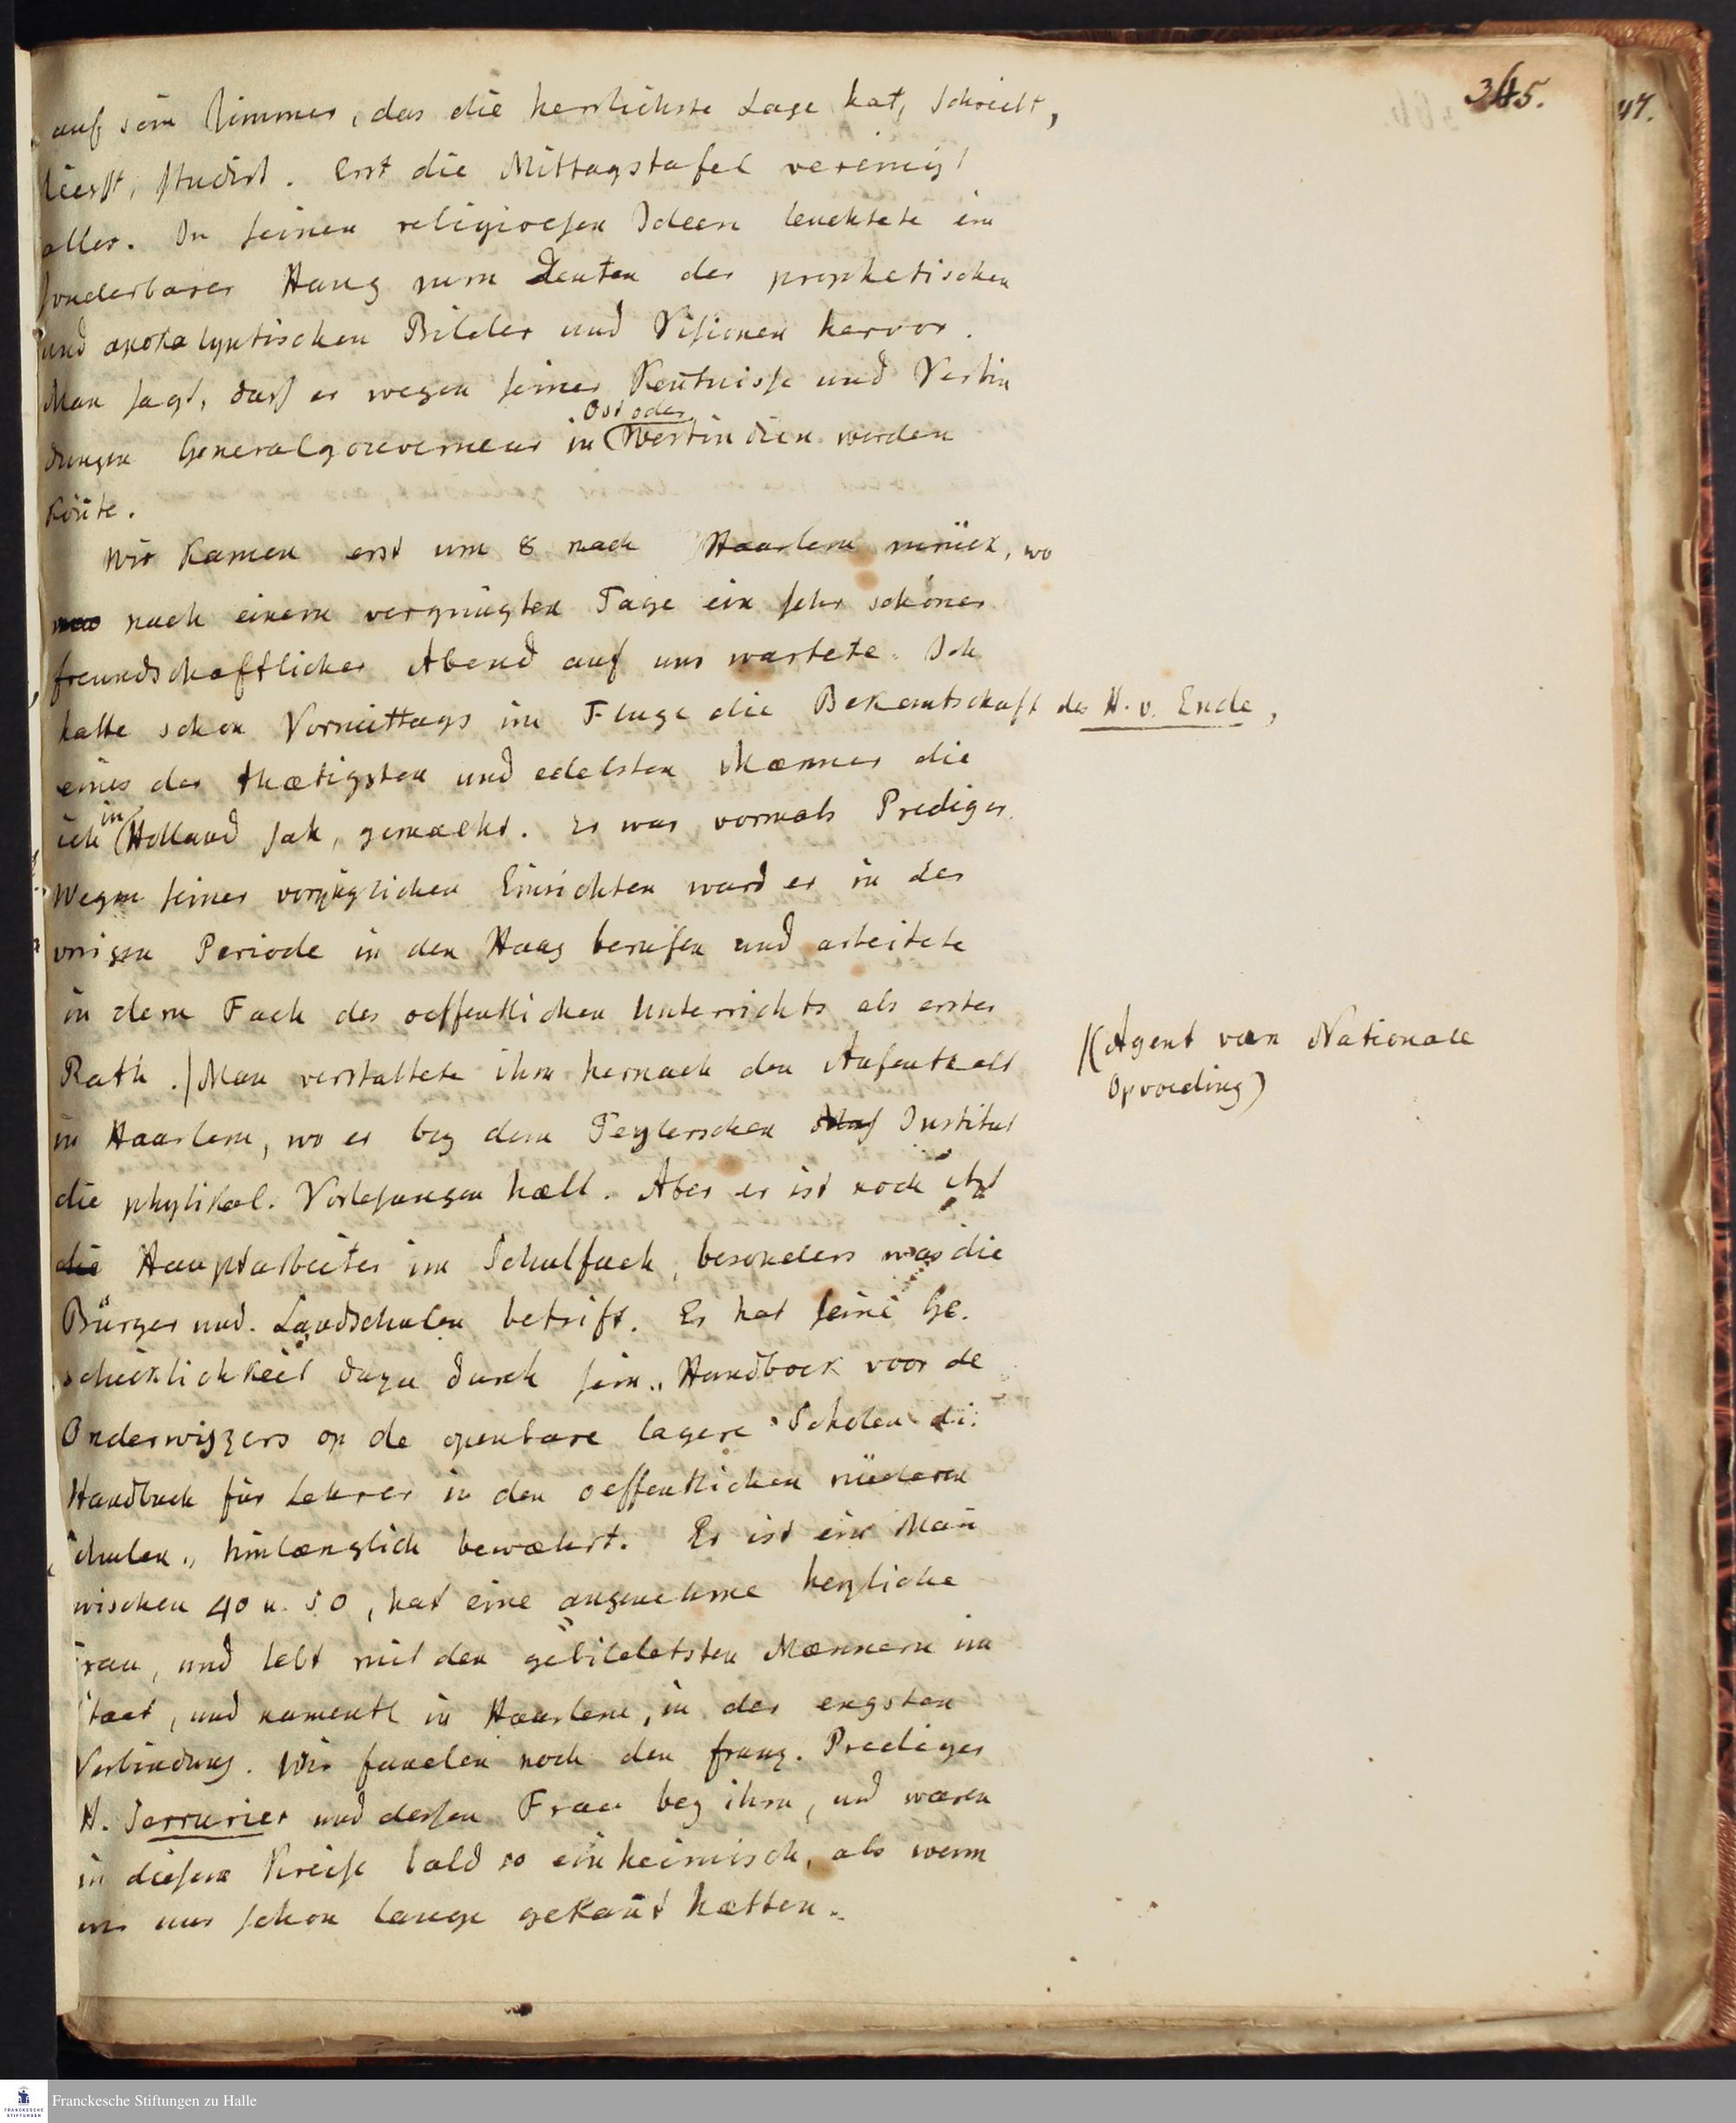 345.
47.
auf sein Zimmer, das die herrlichste Lage hat, schreibt,
liesst, studirt. Erst die Mittagstafel vereinigt
alles. In seinen religioesen Ideen leuchtete ein
sonderbarer Hang zum Deuten der prophetischen
und apokalyptischen Bilder und Visionen hervor.
Man sagt, dass er wegen seiner Kentnisse und Verbin
dungen Generalgouverneur in Ost oder Westindien werden
könte.
Wir kamen erst um 8 nach Haarlem zurück, wo
nach einem vergnügten Tage ein sehr schöner
freundschaftlicher Abend auf uns wartete. Ich
hatte schon Vormittags im Fluge die Bekantschaft des H. v. Ende,
eines der thætigsten und edelsten Mænner die
ich in Holland sah, gemacht. Er war vormals Prediger.
Wegen seiner vorzüglichen Einsichten ward er in der
vorigen Periode in den Haag berufen und arbeitete
in dem Fach des oeffentlichen Unterrichts als erster
Rath. / Man verstattete ihm hernach den Aufenthalt
/(Agent van Nationale
Opvoeding)
in Haarlem, wo er bey dem Teylerschen Institut
die physikal. Vorlesungen hælt. Aber er ist noch itzt
die Hauptarbeiter im Schulfach, besonders was die
Bürger und. Landschulen betrift. Er hat seine Ge.
schicklichkeit dazu durch sein „Handboek voor de
Onderwijzers op de openbare lagere Scholen d.i.
Handbuch für Lehrer in den oeffentlichen niederen
Schulen„ hinlænglich bewæhrt. Er ist ein Man̄
zwischen 40 u. 50, hat eine angenehme herzliche
Frau, und lebt mit den gebildetsten Mænnern im
Staat, und namentl in Haarlem, in der engsten
Verbindung. Wir fanden noch den franz. Prediger
H. Serrurier und dessen Frau bey ihm, und waren
in diesem Kreise bald so einheimisch, als wenn
wir uns schon lange gekan̄t hætten.
Franckesche Stiftungen zu Halle